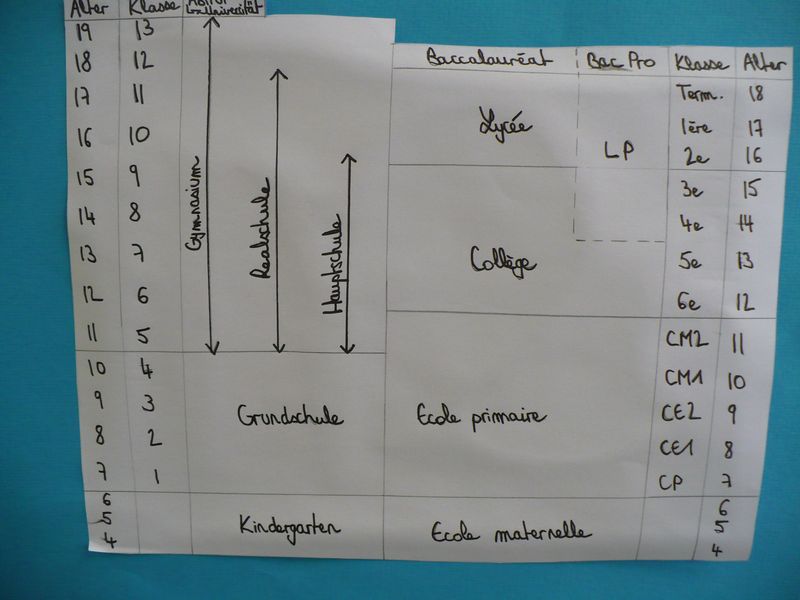 Alter Klasse Abitur
Universität
19 13
18 12
17 11
16 10
15 9
14 8
13 7
12 6
11 5
10 4
9 3
8 2
7 1
6
5
4
Gymnasium
Realschule
Hauptschule
Grundschule
Kindergarten
Baccalauréat Bac Pro Klasse Alter
Lycée
LP
Collège
Ecole primaire
Ecole maternelle
Term. 18
1ère 17
2e 16
3e 15
4e 14
5e 13
6e 12
CM2 11
CM1 10
CE2 9
CE1 8
CP 7
6
5
4